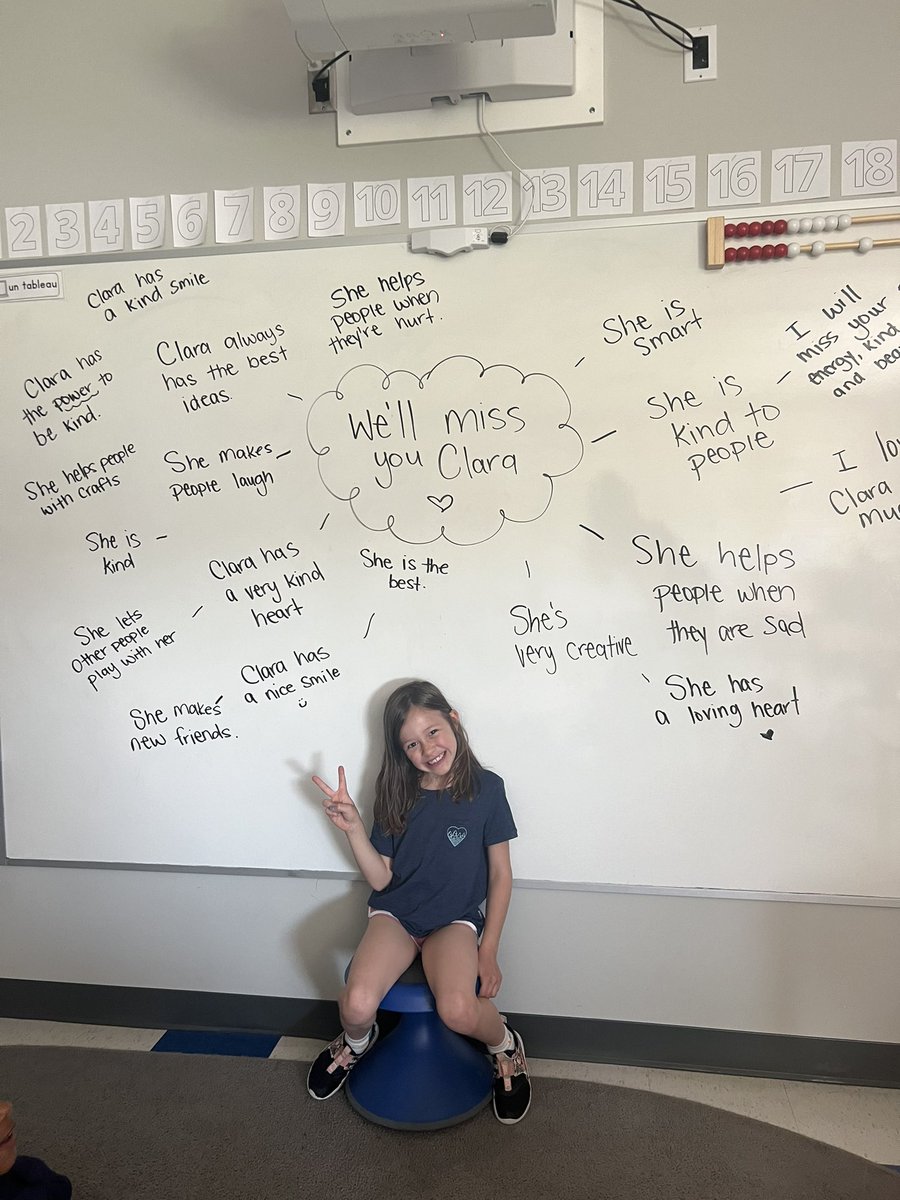 2 3 4 5 6 7 8 9 10 11 12 13 14 15 16 17 18
un tableau
Clara has
a kind smile
She helps
people when
they're hurt.
Clara has
the power to
be kind.
Clara always
has the best
ideas.
She helps people
with crafts
She makes
people laugh
She is
kind
Clara has
a very kind
heart
She lets
other people
play with her
Clara has
a nice smile
She makes
new friends.
We'll miss
you Clara
She is the
best.
She is
smart
She is
kind to
people
I will
miss your
energy, kind
and
I
Clara
She helps
people when
they are sad
She's
very creative
She has
a loving heart